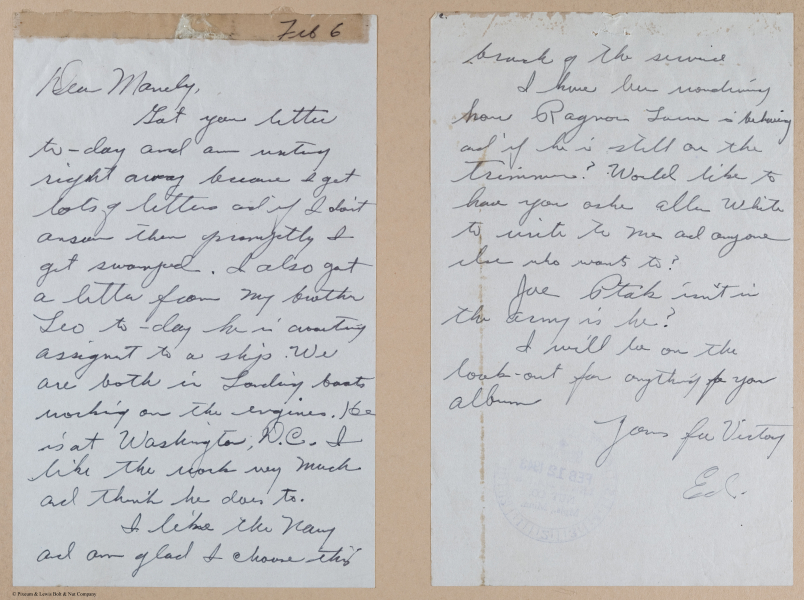 Feb 6
Dear Manely,
Got your letter
to-day and am writing
right away because I get
lots of letters and if I don't
answer them promptly I
get swamped. I also got
a letter from my brother
Leo to-day he is awaiting
assignet to a ship. We
are both in Landing boats
working on the engines. He
is at Washington, D.C. I
like the work very much
and think he does to.
I like the Navy
and am glad I choose this
branch of the service.
I have been wondering
how Ragnor is behaving
and if he is still on the
trimmer? Would like to
have you aske Allen White
to write to me and anyone
else who wants to?
Joe Ptak isn't in
the army is he?
I will be on the
look-out for anything for your
album
Yours for Victory
Ed.
FEB 1943
© Pawson & Lewis Bolt & Nut Company